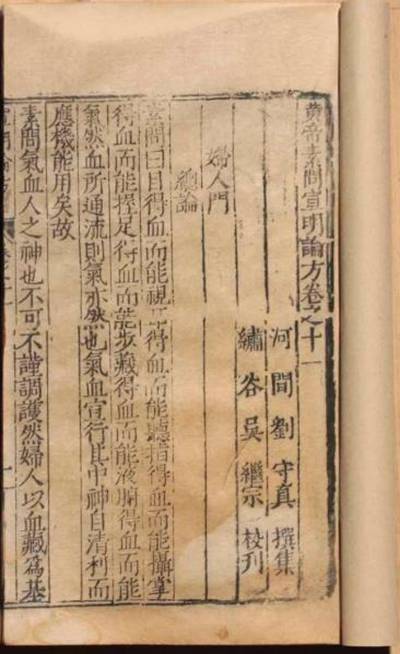 黃帝素問宣明論方卷之十一
河間劉守真撰集
繡谷吳繼宗校刊
婦人門
總論
素問曰目得血而能視耳得血而能聽指得血而能攝掌
得血而能握足得血而能步藏得血而能液腑得血而能
氣然血所通流則氣亦然也氣血宣行其中神自清利而
應機能用矣故
素問氣血人之神也不可不謹調護然婦人以血藏為基